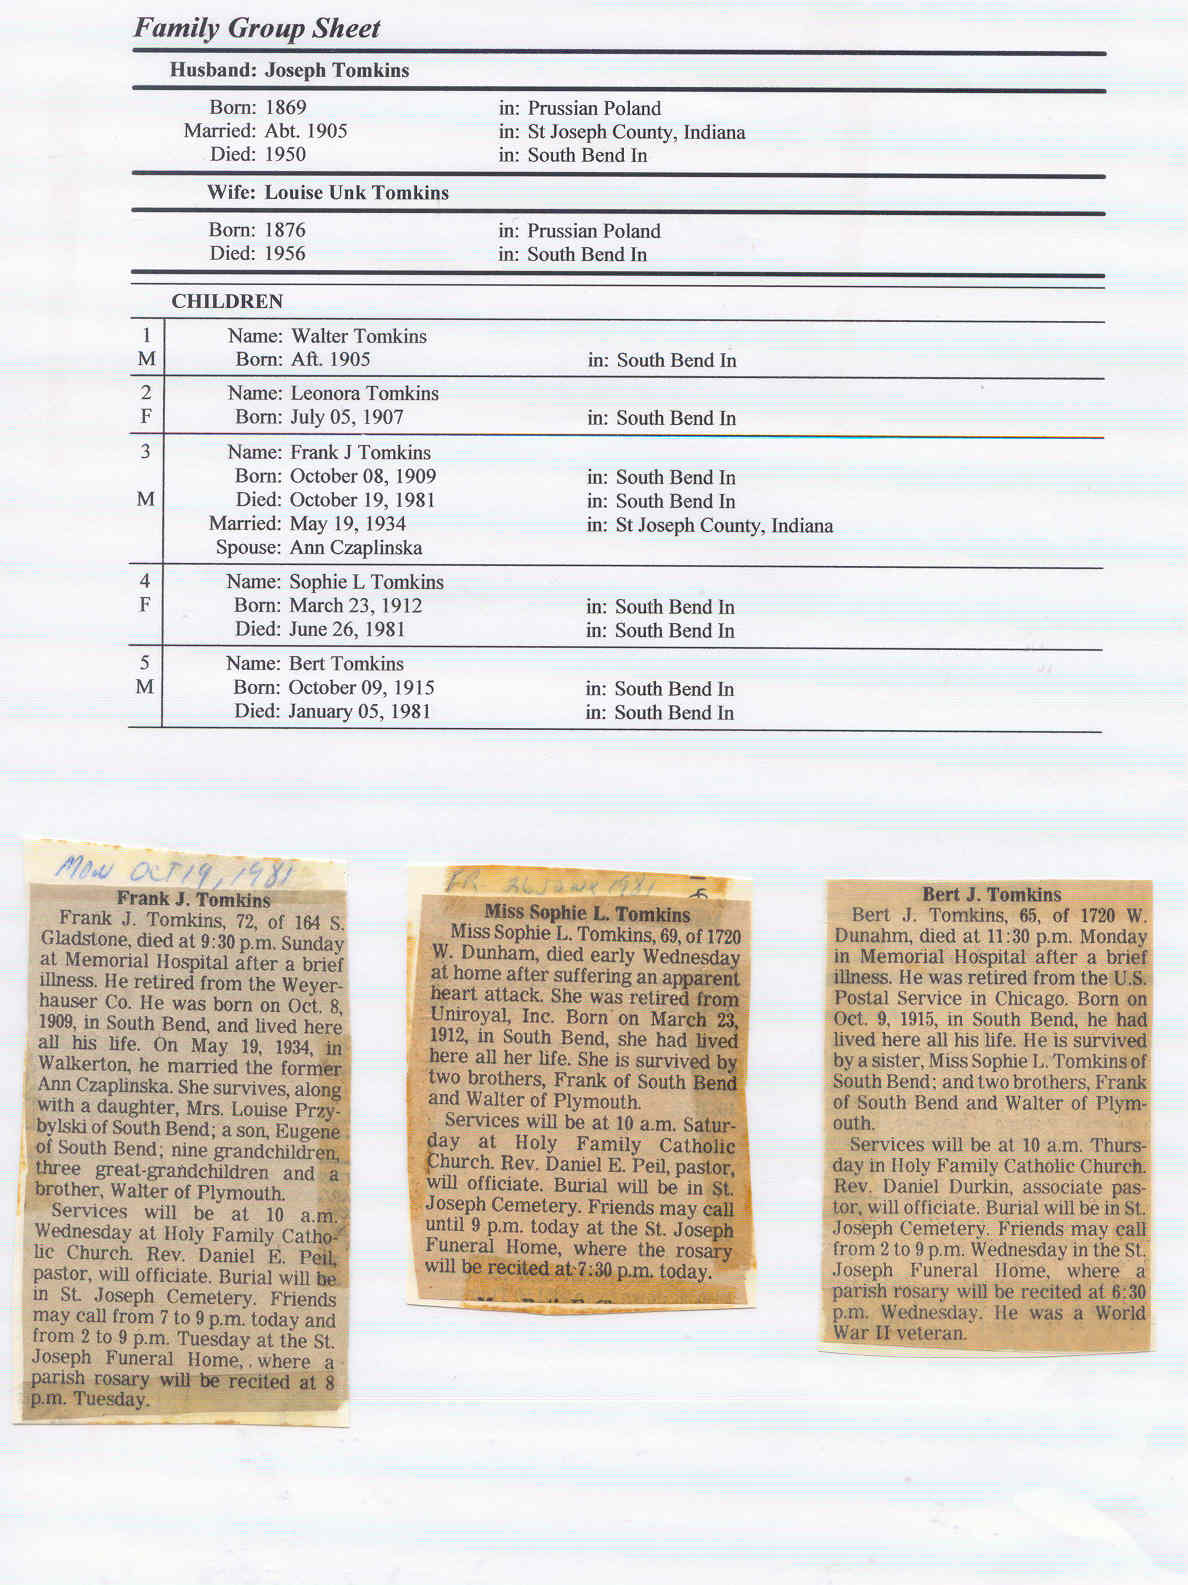 Family Group Sheet
Husband: Joseph Tomkins
Born: 1869 in: Prussian Poland
Married: Abt. 1905 in: St Joseph County, Indiana
Died: 1950 in: South Bend In
Wife: Louise Unk Tomkins
Born: 1876 in: Prussian Poland
Died: 1956 in: South Bend In
CHILDREN
1 Name: Walter Tomkins
M Born: Aft. 1905 in: South Bend In
2 Name: Leonora Tomkins
F Born: July 05, 1907 in: South Bend In
3 Name: Frank J Tomkins
Born: October 08, 1909 in: South Bend In
M Died: October 19, 1981 in: South Bend In
Married: May 19, 1934 in: St Joseph County, Indiana
Spouse: Ann Czaplinska
4 Name: Sophie L Tomkins
F Born: March 23, 1912 in: South Bend In
Died: June 26, 1981 in: South Bend In
5 Name: Bert Tomkins
M Born: October 09, 1915 in: South Bend In
Died: January 05, 1981 in: South Bend In
MON OCT 19, 1981
Frank J. Tomkins
Frank J. Tomkins, 72, of 164 S.
Gladstone, died at 9:30 p.m. Sunday
at Memorial Hospital after a brief
illness. He retired from the Weyer-
hauser Co. He was born on Oct. 8,
1909, in South Bend, and lived here
all his life. On May 19, 1934, in
Walkerton, he married the former
Ann Czaplinska. She survives, along
with a daughter, Mrs. Louise Przy-
bylski of South Bend; a son, Eugene
of South Bend; nine grandchildren,
three great-grandchildren and a
brother, Walter of Plymouth.
Services will be at 10 a.m.
Wednesday at Holy Family Catho-
lic Church. Rev. Daniel E. Peil,
pastor, will officiate. Burial will be
in St. Joseph Cemetery. Friends
may call from 7 to 9 p.m. today and
from 2 to 9 p.m. Tuesday at the St.
Joseph Funeral Home, where a
parish rosary will be recited at 8
p.m. Tuesday.
FR 26 JUNE 1981
Miss Sophie L. Tomkins
Miss Sophie L. Tomkins, 69, of 1720
W. Dunham, died early Wednesday
at home after suffering an apparent
heart attack. She was retired from
Uniroyal, Inc. Born on March 23,
1912, in South Bend, she had lived
here all her life. She is survived by
two brothers, Frank of South Bend
and Walter of Plymouth.
Services will be at 10 a.m. Satur-
day at Holy Family Catholic
Church. Rev. Daniel E. Peil, pastor,
will officiate. Burial will be in St.
Joseph Cemetery. Friends may call
until 9 p.m. today at the St. Joseph
Funeral Home, where the rosary
will be recited at 7:30 p.m. today.
Bert J. Tomkins
Bert J. Tomkins, 65, of 1720 W.
Dunahm, died at 11:30 p.m. Monday
in Memorial Hospital after a brief
illness. He was retired from the U.S.
Postal Service in Chicago. Born on
Oct. 9, 1915, in South Bend, he had
lived here all his life. He is survived
by a sister, Miss Sophie L. Tomkins of
South Bend; and two brothers, Frank
of South Bend and Walter of Plym-
outh.
Services will be at 10 a.m. Thurs-
day in Holy Family Catholic Church.
Rev. Daniel Durkin, associate pas-
tor, will officiate. Burial will be in St.
Joseph Cemetery. Friends may call
from 2 to 9 p.m. Wednesday in the St.
Joseph Funeral Home, where a
parish rosary will be recited at 6:30
p.m. Wednesday. He was a World
War II veteran.